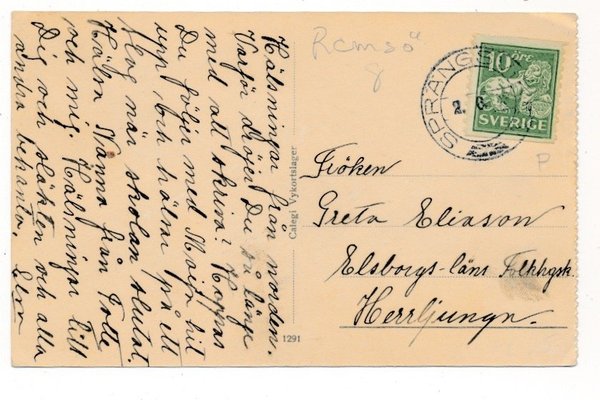 Hälsningar från norden.
Varför dröjer Du så länge
med att skriva? Hoppas
Du följer med Maja hit
upp och hälsa på ett
slag när skolan slutat.
Hälsa Nanna från Tolle
och mig. Hälsningar till
Dig och släkten och alla
andra bekanta. Elsa
Calegi Vykortslager
1291
Ramsö
8
SPRÅNGS
2. 6.
10 ÖRE
SVERIGE
P
Fröken
Greta Eliason
Elsborgs-läns Folkhgsk.
Herrljunga.